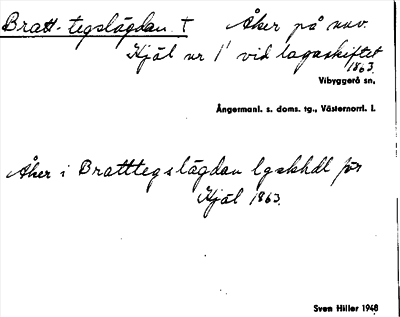 Bratt-tegslägdan † Åker på nuv.
Kjäl nr 1 vid lagaskiftet
1863.
Vibyggerå sn,
Ångermanl. s. doms. tg., Västernorrl. l.
Åker i Bratttegslägdan lgskhdl för
Kjäl 1863.
Sven Hiller 1948